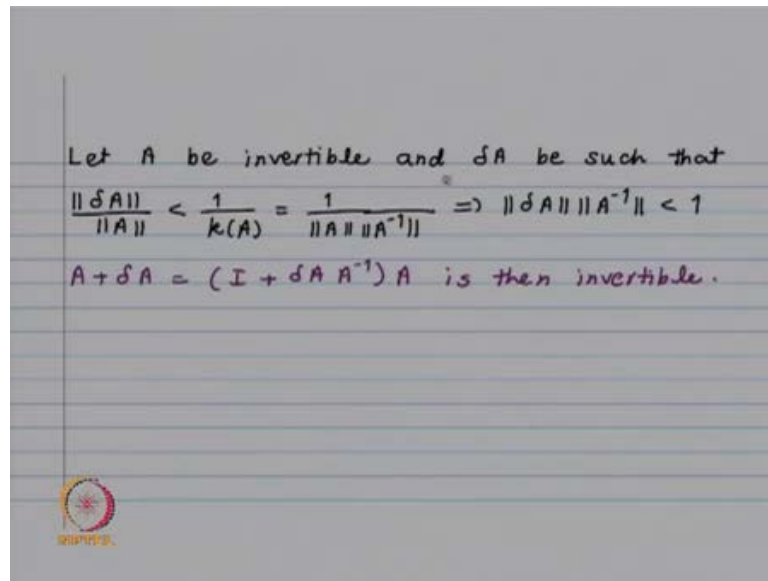 Let A be invertible and δA be such that
||δA|| / ||A|| < 1 / k(A) = 1 / (||A|| ||A⁻¹||) => ||δA|| ||A⁻¹|| < 1
A + δA = (I + δA A⁻¹) A is then invertible.